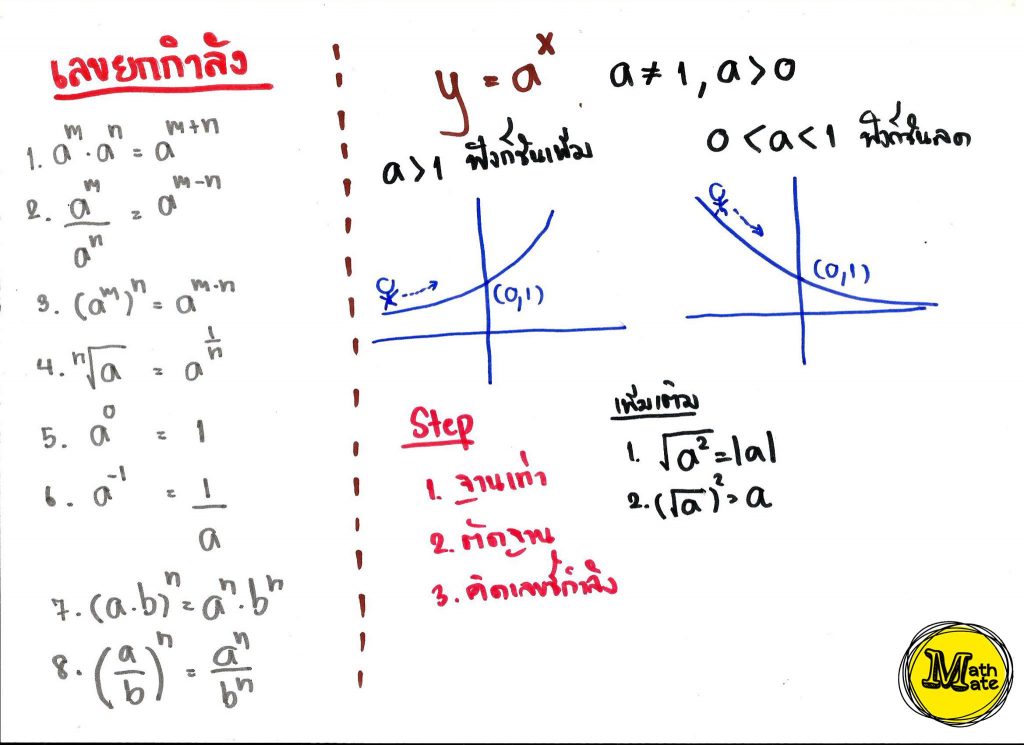 เลขยกกำลัง
1. a^m · a^n = a^{m+n}
2. \frac{a^m}{a^n} = a^{m-n}
3. (a^m)^n = a^{m·n}
4. \sqrt[n]{a} = a^{\frac{1}{n}}
5. a^0 = 1
6. a^{-1} = \frac{1}{a}
7. (a·b)^n = a^n · b^n
8. (\frac{a}{b})^n = \frac{a^n}{b^n}
y = a^x a ≠ 1, a > 0
a > 1 ฟังก์ชันเพิ่ม
(0,1)
0 < a < 1 ฟังก์ชันลด
(0,1)
Step
1. ฐานเท่า
2. ตัดฐาน
3. คิดเลขชี้กำลัง
เพิ่มเติม
1. \sqrt{a^2} = |a|
2. (\sqrt{a})^2 = a
Math
Mate